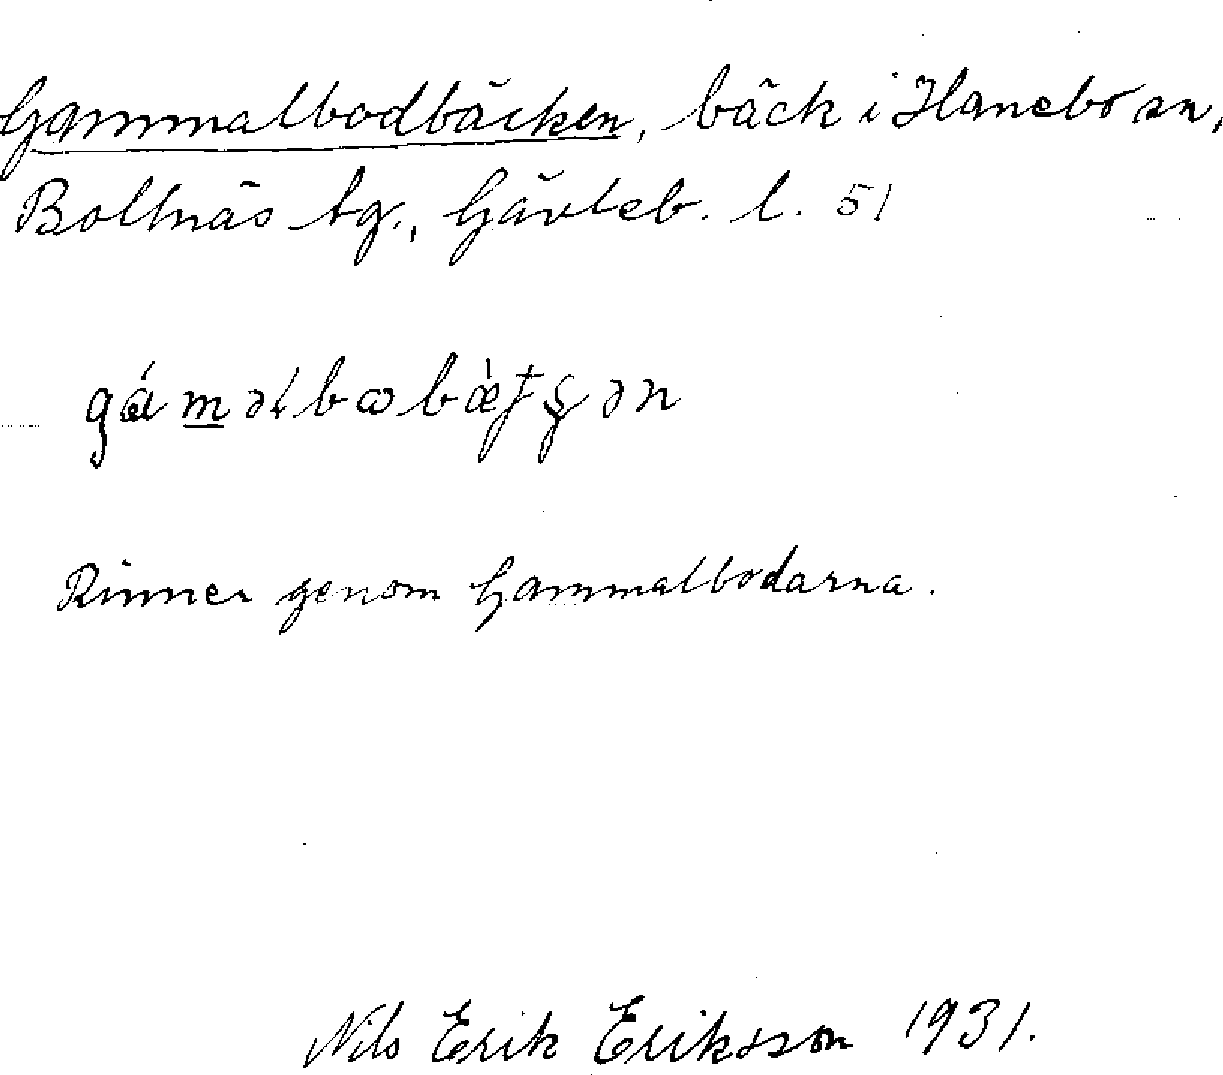 Gammalbodbäcken, bäck i Hanebo sn,
Bollnäs tg., Gävleb. l. 51
Rinner genom Gammalbodarna.
Nils Erik Eriksson 1931.